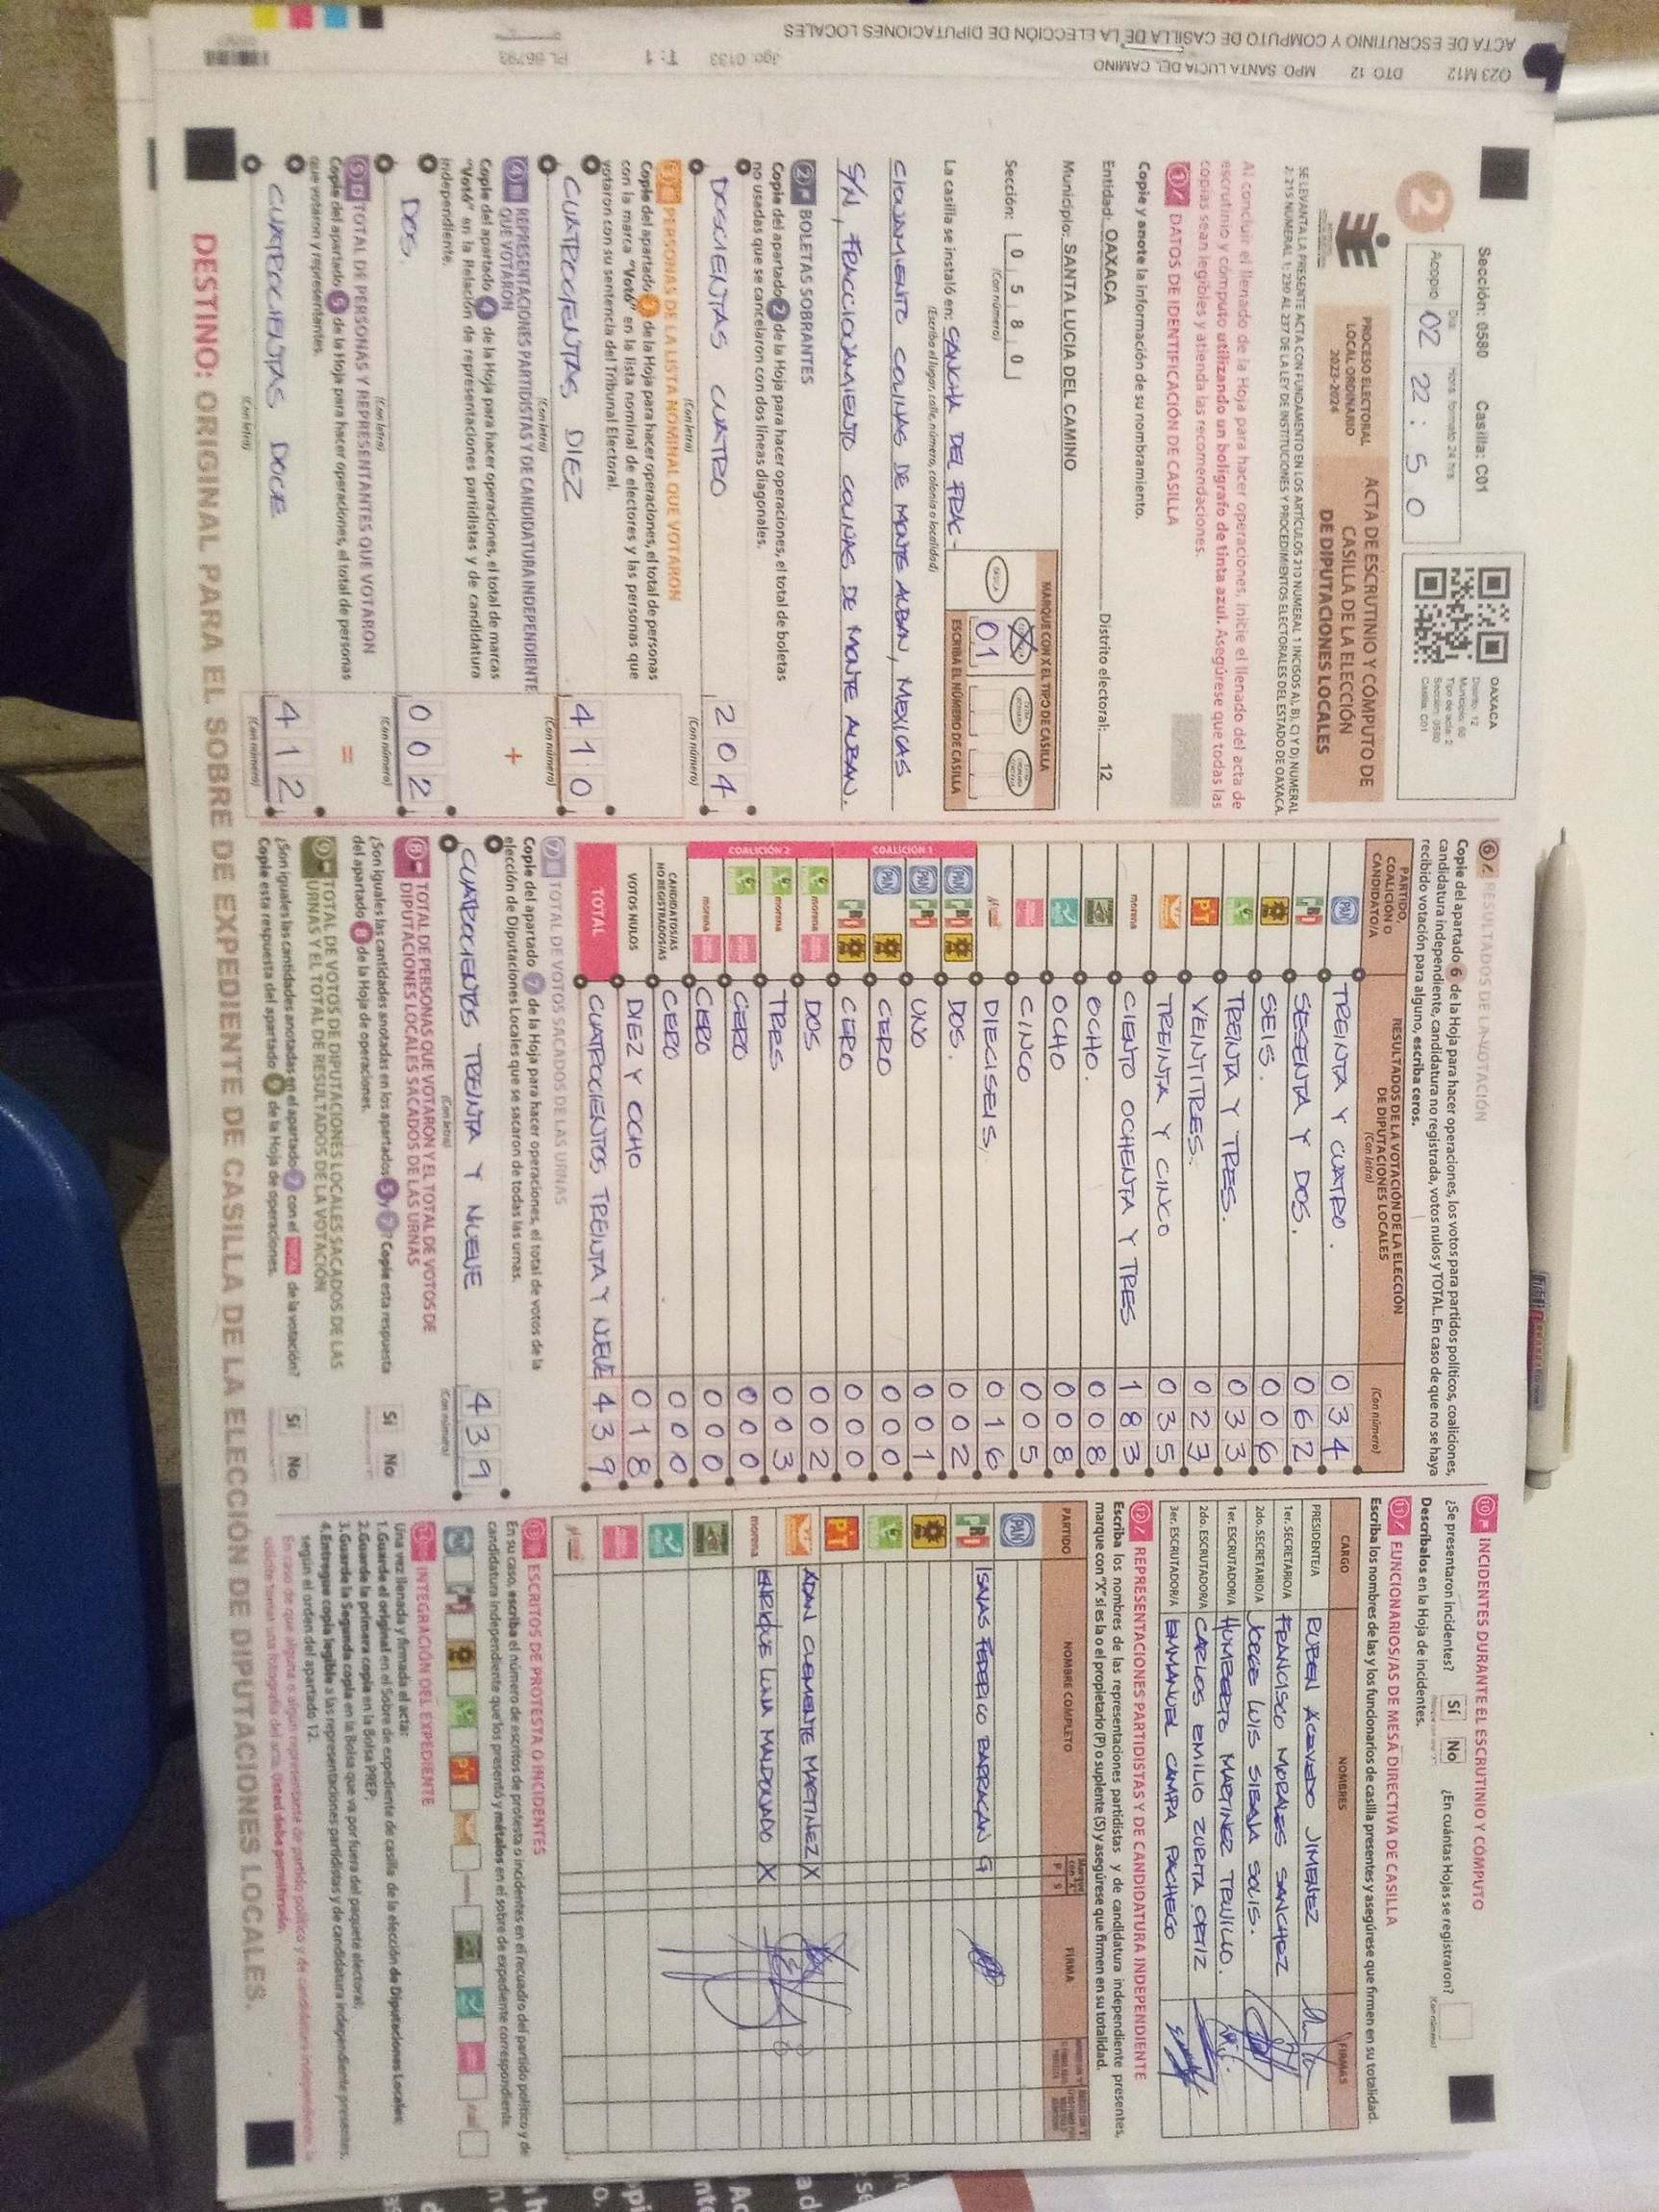 ACTA DE ESCRUTINIO Y CÓMPUTO DE CASILLA DE LA ELECCIÓN DE DIPUTACIONES LOCALES
O23 M12 DTO 12 MPO SANTA LUCIA DEL CAMINO Jgo: 0133 T: 1
Sección: 0580 Casilla: C01
2
Acopio 02 22:50
Día: Hora: formato 24 hrs
OAXACA
Distrito: 12
Tipo de acta: 2
Sección: 0580
Casilla: C01
PROCESO ELECTORAL
LOCAL ORDINARIO
2023-2024
ACTA DE ESCRUTINIO Y CÓMPUTO DE
CASILLA DE LA ELECCIÓN
DE DIPUTACIONES LOCALES
Al concluir el llenado de la Hoja para hacer operaciones, inicie el llenado del acta de
escrutinio y cómputo utilizando un bolígrafo de tinta azul. Asegúrese que todas las
copias sean legibles y atienda las recomendaciones.
1 DATOS DE IDENTIFICACIÓN DE CASILLA
Copie y anote la información de su nombramiento.
Entidad: OAXACA Distrito electoral: 12
Municipio: SANTA LUCIA DEL CAMINO
Sección: 0 5 8 0
(Con número)
MARQUE CON X EL TIPO DE CASILLA
BÁSICA
ESCRIBA EL NÚMERO DE CASILLA
01
La casilla se instaló en: CANCHA DEL FRAC-
(Escriba el lugar, calle, número, colonia o localidad)
CIONAMIENTO COLINAS DE MONTE ALBAN, MEXICAS
S/N, FRACCIONAMIENTO COLINAS DE MONTE ALBAN.
2 BOLETAS SOBRANTES
Copie del apartado 2 de la Hoja para hacer operaciones, el total de boletas
no usadas que se cancelaron con dos líneas diagonales.
DOSCIENTAS CUATRO 204
(Con letra) (Con número)
3 PERSONAS DE LA LISTA NOMINAL QUE VOTARON
Copie del apartado 3 de la Hoja para hacer operaciones, el total de personas
con la marca "Votó" en la lista nominal de electores y las personas que
votaron con su sentencia del Tribunal Electoral.
CUATROCIENTAS DIEZ 410
(Con letra) (Con número)
4 REPRESENTACIONES PARTIDISTAS Y DE CANDIDATURA INDEPENDIENTE
QUE VOTARON
+
Copie del apartado 4 de la Hoja para hacer operaciones, el total de marcas
"Votó" en la Relación de representaciones partidistas y de candidatura
independiente.
DOS. 002
(Con letra) (Con número)
5 TOTAL DE PERSONAS Y REPRESENTANTES QUE VOTARON
=
Copie del apartado 5 de la Hoja para hacer operaciones, el total de personas
que votaron y representantes.
CUATROCIENTAS DOCE 412
(Con letra) (Con número)
6 RESULTADOS DE LA VOTACIÓN
Copie del apartado 6 de la Hoja para hacer operaciones, los votos para partidos políticos, coaliciones,
candidatura independiente, candidatura no registrada, votos nulos y TOTAL. En caso de que no se haya
recibido votación para alguno, escriba ceros.
PARTIDO, COALICIÓN O CANDIDATO/A
RESULTADOS DE LA VOTACIÓN DE LA ELECCIÓN DE DIPUTACIONES LOCALES
(Con letra) (Con número)
PAN TREINTA Y CUATRO. 034
PRI SESENTA Y DOS. 062
SEIS. 006
TREINTA Y TRES. 033
PT VEINTITRES. 023
TREINTA Y CINCO 035
morena CIENTO OCHENTA Y TRES 183
OCHO. 008
OCHO 008
CINCO 005
DIECISEIS, 016
COALICIÓN 1
PAN PRI DOS. 002
PAN PRI UNO 001
PAN CERO 000
PRI CERO 000
COALICIÓN 2
morena DOS 002
morena TRES 003
CERO 000
morena CERO 000
CANDIDATOS/AS NO REGISTRADOS/AS CERO 000
VOTOS NULOS DIEZ Y OCHO 018
TOTAL CUATROCIENTOS TREINTA Y NUEVE 439
7 TOTAL DE VOTOS SACADOS DE LAS URNAS
Copie del apartado 7 de la Hoja para hacer operaciones, el total de votos de la
elección de Diputaciones Locales que se sacaron de todas las urnas.
CUATROCIENTOS TREINTA Y NUEVE 439
(Con letra) (Con número)
8 TOTAL DE PERSONAS QUE VOTARON Y EL TOTAL DE VOTOS DE
DIPUTACIONES LOCALES SACADOS DE LAS URNAS
¿Son iguales las cantidades anotadas en los apartados 5 y 7? Copie esta respuesta
del apartado 8 de la Hoja de operaciones. Sí No
9 TOTAL DE VOTOS DE DIPUTACIONES LOCALES SACADOS DE LAS
URNAS Y EL TOTAL DE RESULTADOS DE LA VOTACIÓN
¿Son iguales las cantidades anotadas en el apartado 7 con el TOTAL de la votación?
Copie esta respuesta del apartado 9 de la Hoja de operaciones. Sí No
10 INCIDENTES DURANTE EL ESCRUTINIO Y CÓMPUTO
¿Se presentaron incidentes? Sí No ¿En cuántas Hojas se registraron?
(Con número)
Descríbalos en la Hoja de incidentes.
11 FUNCIONARIOS/AS DE MESA DIRECTIVA DE CASILLA
Escriba los nombres de las y los funcionarios de casilla presentes y asegúrese que firmen en su totalidad.
CARGO NOMBRES FIRMAS
PRESIDENTE/A RUBEN ACEVEDO JIMENEZ
1er. SECRETARIO/A FRANCISCO MORALES SANCHEZ
2do. SECRETARIO/A JORGE LUIS SIBAJA SOLIS.
1er. ESCRUTADOR/A HUMBERTO MARTINEZ TRUJILLO.
2do. ESCRUTADOR/A CARLOS EMILIO ZURITA ORTIZ
3er. ESCRUTADOR/A EMMANUEL CAMPA PACHECO
12 REPRESENTACIONES PARTIDISTAS Y DE CANDIDATURA INDEPENDIENTE
Escriba los nombres de las representaciones partidistas y de candidatura independiente presentes,
marque con "X" si es la o el propietario (P) o suplente (S) y asegúrese que firmen en su totalidad.
PARTIDO NOMBRE COMPLETO P S FIRMA
PAN
PRI ISAIAS FEDERICO BARRAGAN G
PT
ADAN CLEMENTE MARTINEZ X
morena ENRIQUE LUNA MALDONADO X
13 ESCRITOS DE PROTESTA O INCIDENTES
En su caso, escriba el número de escritos de protesta o incidentes en el recuadro del partido político y de
candidatura independiente que los presentó y métalos en el sobre de expediente correspondiente.
PT
14 INTEGRACIÓN DEL EXPEDIENTE
Una vez llenada y firmada el acta:
1.Guarde el original en el Sobre de expediente de casilla de la elección de Diputaciones Locales;
2.Guarde la primera copia en la Bolsa PREP;
3.Guarde la Segunda copia en la Bolsa que va por fuera del paquete electoral;
4.Entregue copia legible a las representaciones partidistas y de candidatura independiente presentes,
según el orden del apartado 12.
DESTINO: ORIGINAL PARA EL SOBRE DE EXPEDIENTE DE CASILLA DE LA ELECCIÓN DE DIPUTACIONES LOCALES.